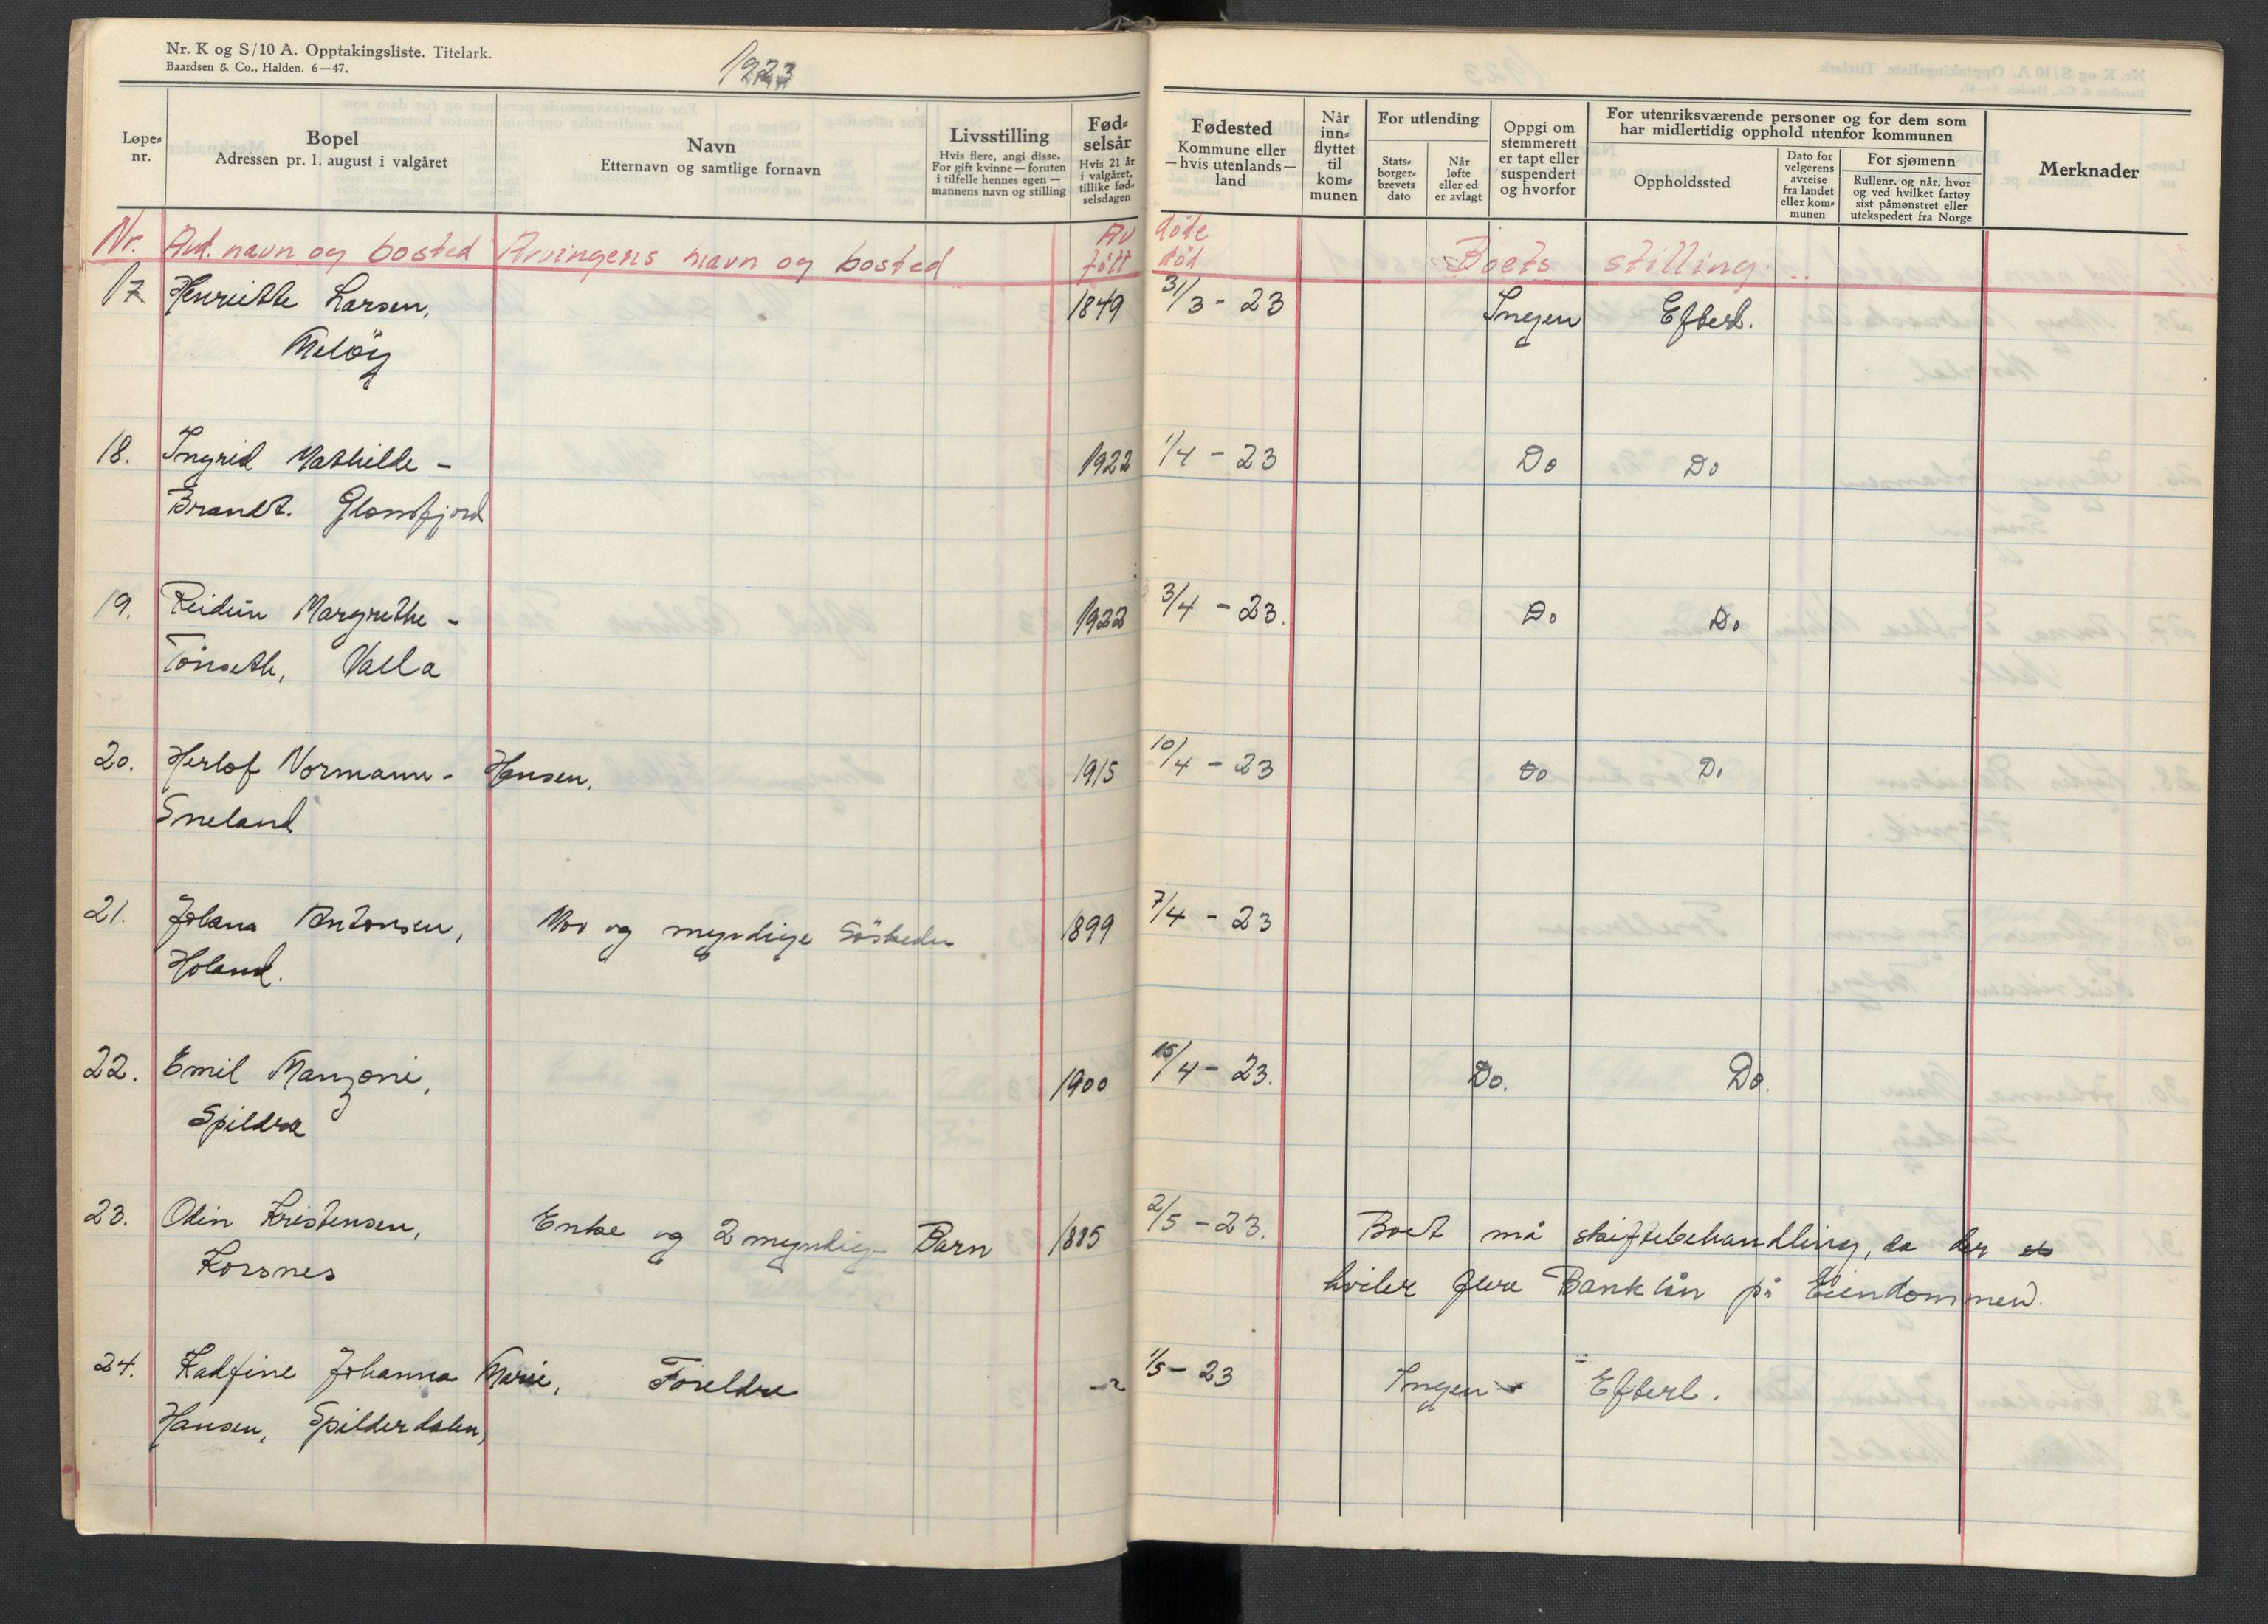 Nr. K og S/10 A. Opptakingsliste. Titelark.
Baardsen & Co., Halden. 6—47.
1923
Løpe-
nr.
Bopel
Adressen pr. 1. august i valgåret
Navn
Etternavn og samtlige fornavn
Livsstilling
Hvis flere, angi disse.
For gift kvinne — foruten
i tilfelle hennes egen —
mannens navn og stilling
Fød-
selsår
Hvis 21 år
i valgåret,
tillike fød-
selsdagen
Fødested
Kommune eller
— hvis utenlands —
land
Når
inn-
flyttet
til
kom-
munen
For utlending
Stats-
borger-
brevets
dato
Når
løfte
eller ed
er avlagt
Oppgi om
stemmerett
er tapt eller
suspendert
og hvorfor
For utenriksværende personer og for dem som
har midlertidig opphold utenfor kommunen
Oppholdssted
Dato for
velgerens
avreise
fra landet
eller kom-
munen
For sjømenn
Rullenr. og når, hvor
og ved hvilket fartøy
sist påmønstret eller
utekspedert fra Norge
Merknader
Nr. Avd. navn og bosted Arvingens navn og bosted Av døde
født død Boets stilling
17 Henriette Larsen, 1849 31/3 - 23 Ingen Efterl.
Meløy
18. Ingrid Mathilde - 1922 1/4 - 23 Do Do
Brandt. Glomfjord
19. Reidun Margrethe - 1922 3/4 - 23. Do Do
Tönseth, Valla
20. Herlof Normann - Hansen. 1915 10/4 - 23 Do Do
Sneland
21. Antonsen, Mor og myndige Söskeder 1899 7/4 - 23
Holand.
22. Emil Manzoni, 1900 15/4 - 23. Do. Do.
Spildra
23. Odin Kristensen, Enke og 2 myndige Barn 1885 2/5 - 23. Boet må skiftebehandling, da der
Korsnes hviler flere Banklån på Eiendommen.
24. Kadfine Johanna Marie, Foreldre 1/5 - 23 Ingen Efterl.
Hansen, Spilderdalen